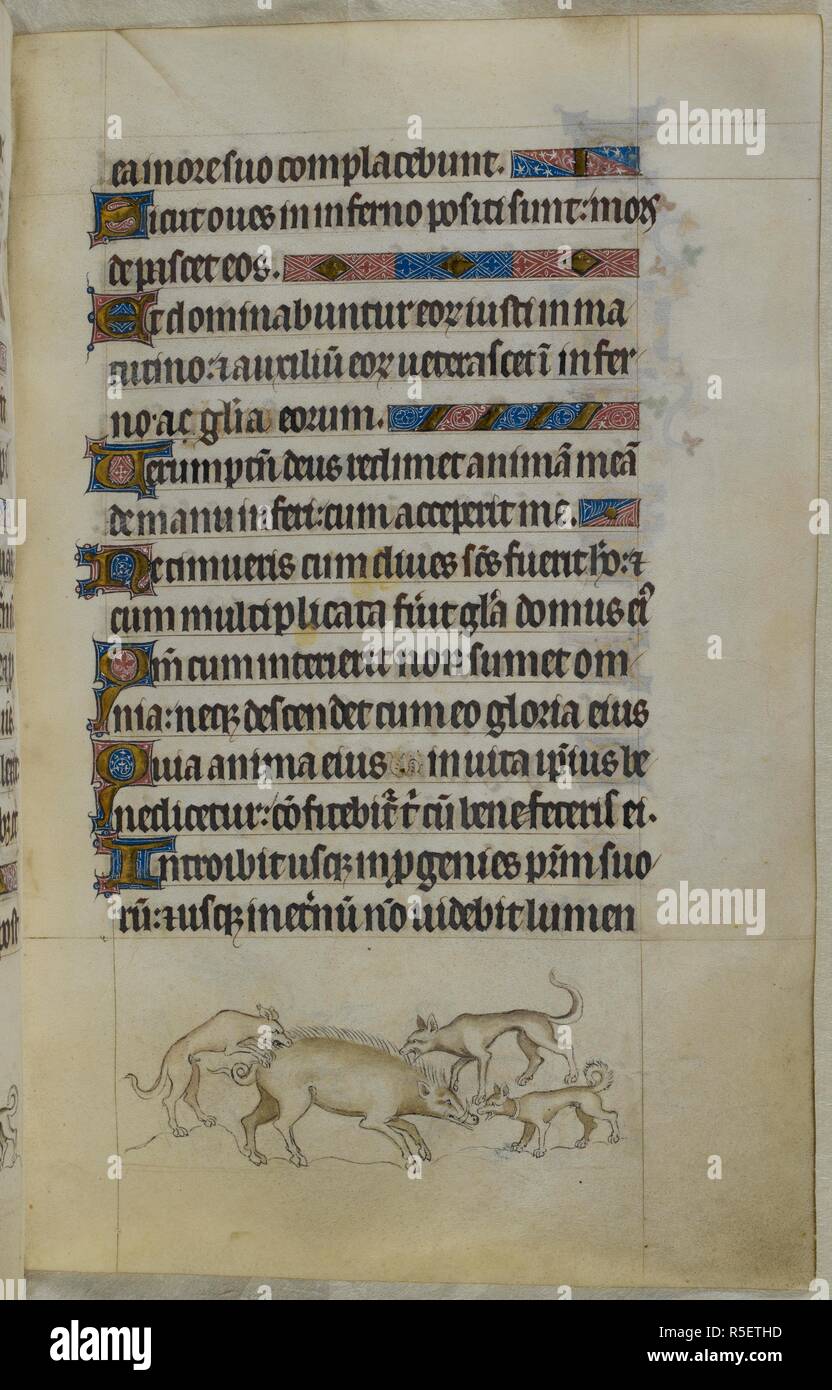 ea in ore suo complacebunt.
Sicut oues in inferno positi sunt: mors
depascet eos.
Et dominabuntur eoꝝ iusti in ma
tutino: ⁊ auxiliū eoꝝ ueterascet ī infer
no: a gl̄ia eorum.
Uerumptn̄ deus redimet animā meā
de manu inferi: cum acceperit me.
Ne timueris cum diues fc̄s fuerit ho: ⁊
cum multiplicata fu̓it gl̄a domus ei᷒
Qm̄ cum interierit non sumet om
nia: neqꝫ descendet cum eo gloria eius
Quia anima eius in uita ip̄ius be
nedicetur: cōfitebit᷑ t̓ cū benefeceris ei.
Introibit usqꝫ in ꝓgenies pr̄m suo
rū: ⁊ usqꝫ in et̓nū nō uidebit lumen
alamy
alamy
a
a
a
a
a
a
a
alamy
Image ID: R5ETHD
www.alamy.com